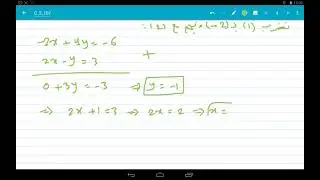 نضرب (1) بـ (-2) ونجمع مع (2):
-2x + 4y = -6
2x - y = 3 +
0 + 3y = -3 ⇒ y = -1
⇒ 2x + 1 = 3 ⇒ 2x = 2 ⇒ x =